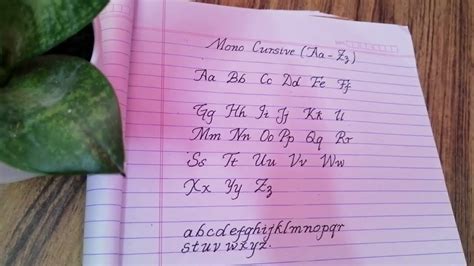 Mono Cursive (Aa - Zz)
Aa Bb Cc Dd Ee Ff
Gg Hh Ii Jj Kk Ll
Mm Nn Oo Pp Qq Rr
Ss Tt Uu Vv Ww
Xx Yy Zz
abcdefghijklmnopqr
stuvwxyz.